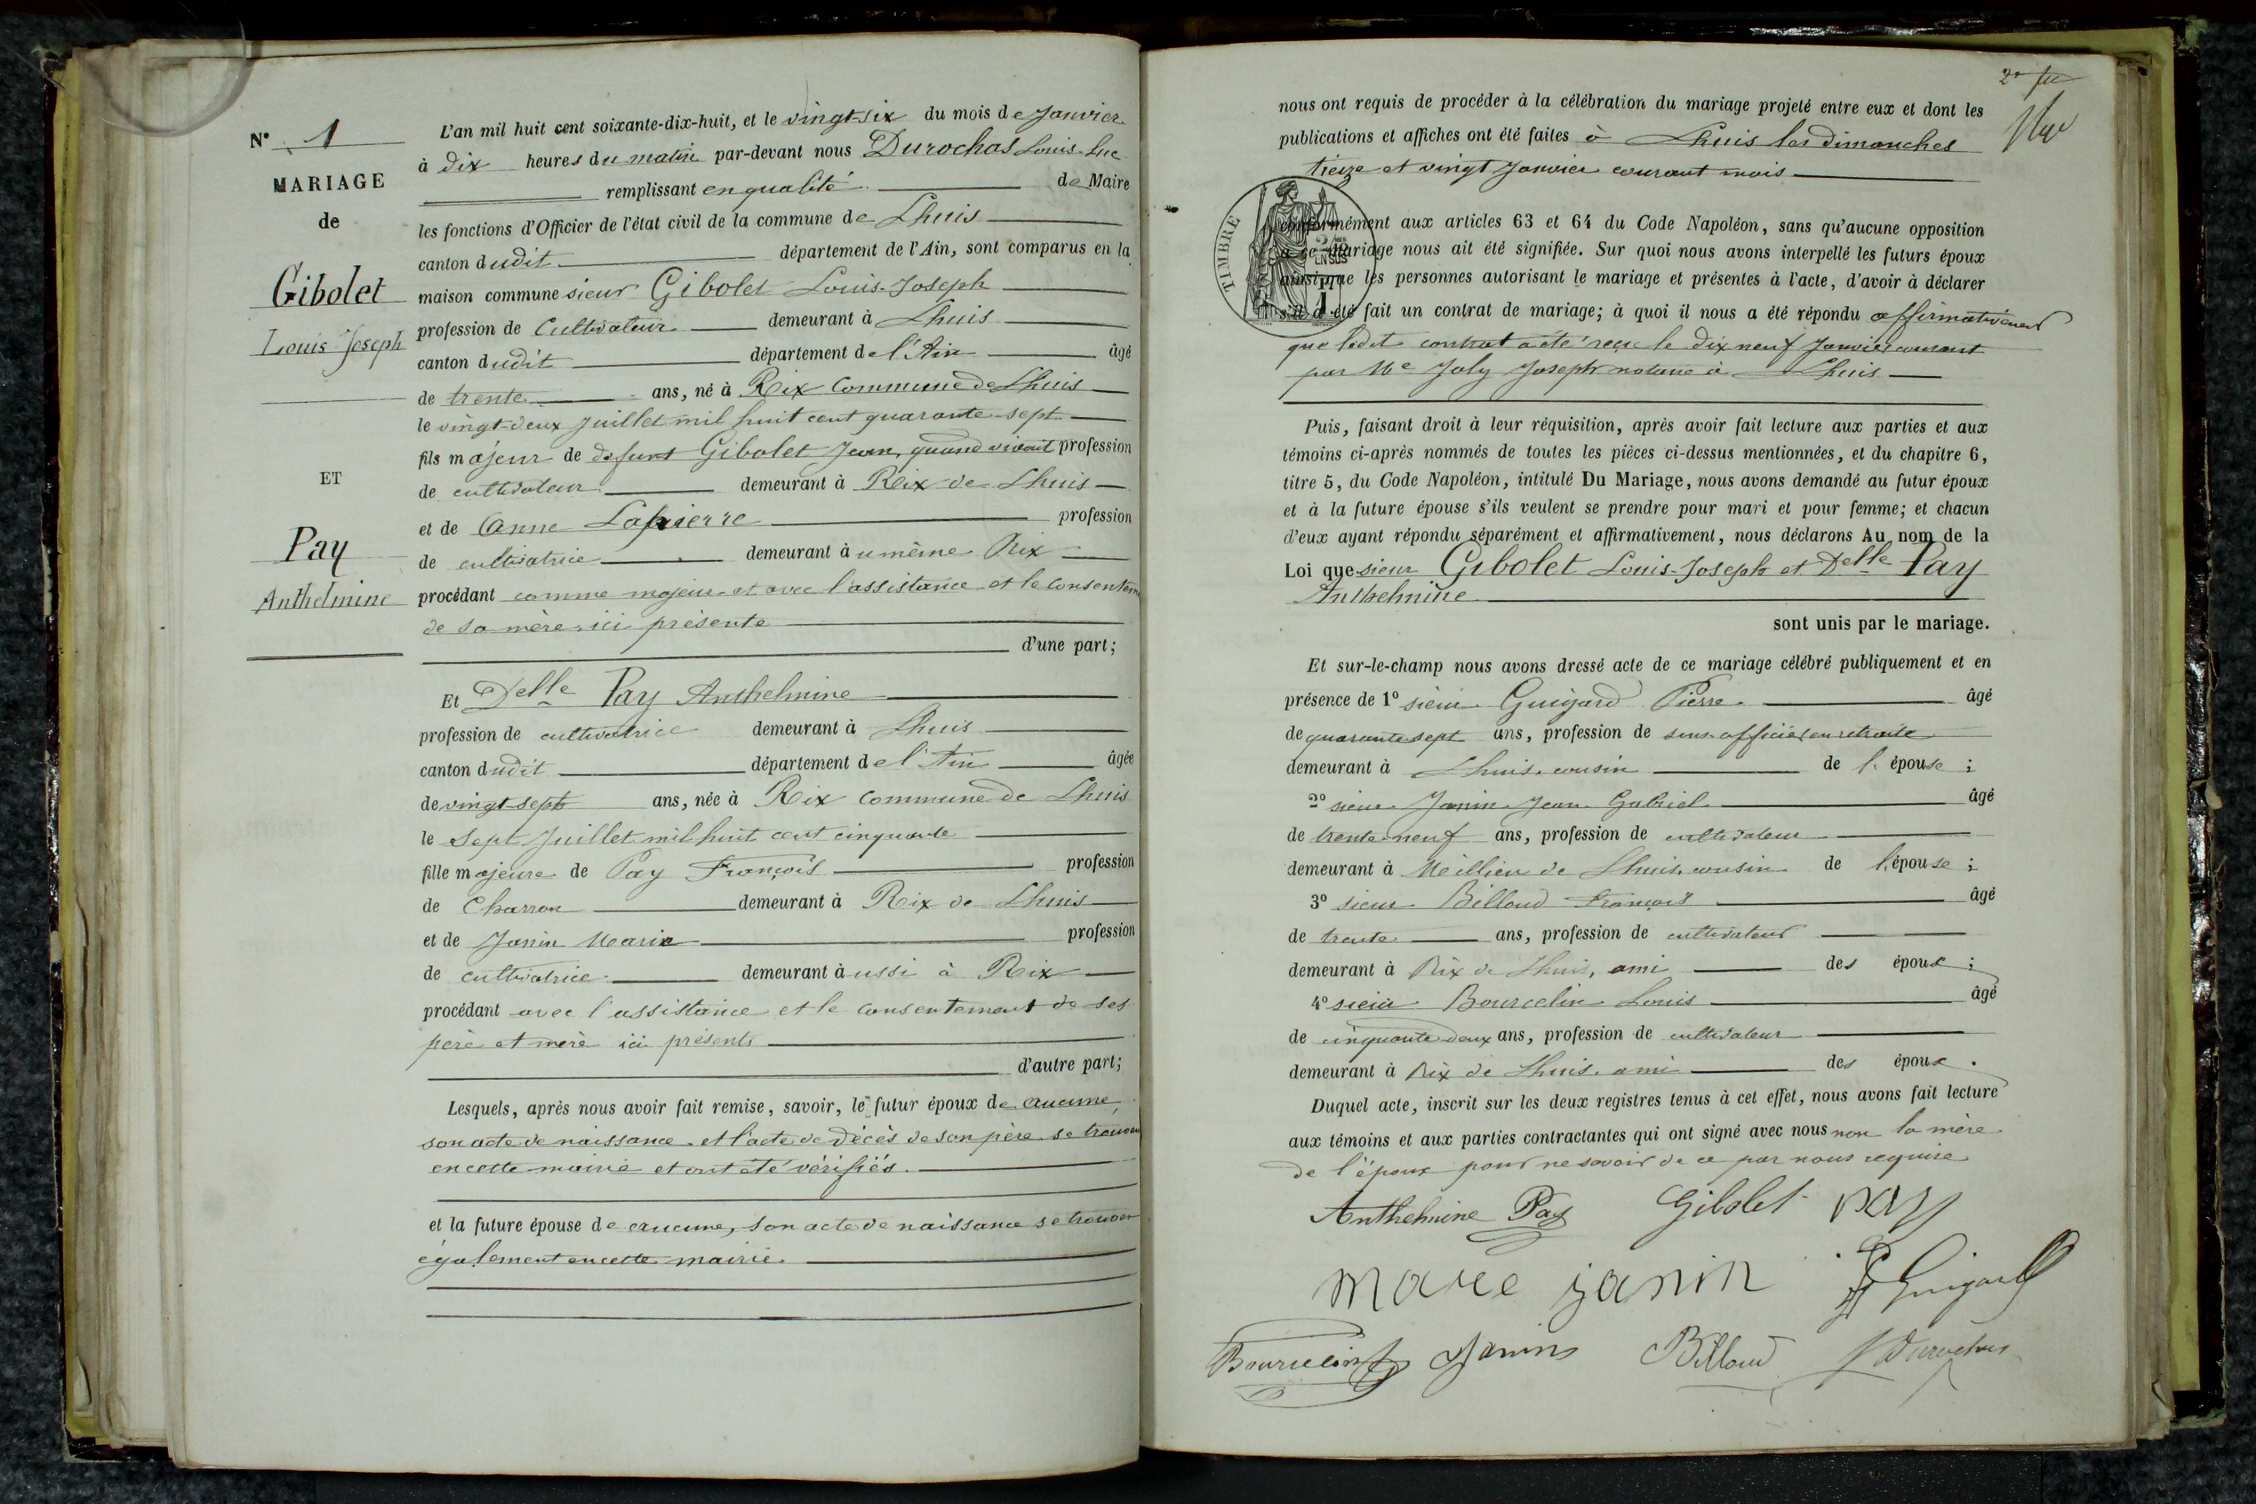 N° 1
MARIAGE
de
Gibolet
Louis Joseph
ET
Pay
Anthelmine
L'an mil huit cent soixante-dix-huit, et le vingt-six du mois de Janvier
à dix heures du matin par-devant nous Durochas Louis Luc
remplissant en qualité de Maire
les fonctions d'Officier de l'état civil de la commune de Lhuis
canton dudit département de l'Ain, sont comparus en la
maison commune sieur Gibolet Louis-Joseph
profession de Cultivateur demeurant à Lhuis
canton dudit département de l'Ain âgé
de trente ans, né à Rix Commune de Lhuis
le vingt-deux Juillet mil huit cent quarante-sept
fils majeur de defunt Gibolet Jean, quand vivait profession
de cultivateur demeurant à Rix de Lhuis
et de Anne Lapierre profession
de cultivatrice demeurant à u même Rix
procédant comme majeur et avec l'assistance et le consentem
de sa mère ici présente
d'une part;
Et Delle Pay Anthelmine
profession de cultivatrice demeurant à Lhuis
canton dudit département de l'Ain âgée
de vingt-sept ans, née à Rix commune de Lhuis
le sept Juillet mil huit cent cinquante
fille majeure de Pay François profession
de Charron demeurant à Rix de Lhuis
et de Janin Marie profession
de cultivatrice demeurant aussi à Rix
procédant avec l'assistance et le consentement de ses
père et mère ici présents
d'autre part;
Lesquels, après nous avoir fait remise, savoir, le futur époux de aucune,
son acte de naissance et l'acte de décès de son père se trouven
en cette mairie et ont été vérifiés.
et la future épouse de aucune, son acte de naissance se trouvan
également en cette mairie.
2e
nous ont requis de procéder à la célébration du mariage projeté entre eux et dont les
publications et affiches ont été faites à Lhuis les dimanches
treize et vingt Janvier courant mois
TIMBRE
conformément aux articles 63 et 64 du Code Napoléon, sans qu'aucune opposition
à ce mariage nous ait été signifiée. Sur quoi nous avons interpellé les futurs époux
ainsi que les personnes autorisant le mariage et présentes à l'acte, d'avoir à déclarer
s'il a été fait un contrat de mariage; à quoi il nous a été répondu affirmativement
que ledit contrat a été reçu le dix neuf Janvier courant
par Me Joly Joseph notaire à Lhuis
Puis, faisant droit à leur réquisition, après avoir fait lecture aux parties et aux
témoins ci-après nommés de toutes les pièces ci-dessus mentionnées, et du chapitre 6,
titre 5, du Code Napoléon, intitulé Du Mariage, nous avons demandé au futur époux
et à la future épouse s'ils veulent se prendre pour mari et pour femme; et chacun
d'eux ayant répondu séparément et affirmativement, nous déclarons Au nom de la
Loi que sieur Gibolet Louis-Joseph et Delle Pay
Anthelmine
sont unis par le mariage.
Et sur-le-champ nous avons dressé acte de ce mariage célébré publiquement et en
présence de 1° sieur Guigard Pierre âgé
de quarante sept ans, profession de sous-officier en retraite
demeurant à Lhuis, cousin de l'épouse;
2° sieur Janin Jean Gabriel âgé
de trente-neuf ans, profession de cultivateur
demeurant à Meillieu de Lhuis, cousin de l'épouse;
3° sieur Billoud François âgé
de trente ans, profession de cultivateur
demeurant à Rix de Lhuis, ami des époux;
4° sieur Bourcelin Louis âgé
de cinquante-deux ans, profession de cultivateur
demeurant à Rix de Lhuis, ami des époux.
Duquel acte, inscrit sur les deux registres tenus à cet effet, nous avons fait lecture
aux témoins et aux parties contractantes qui ont signé avec nous non la mère
de l'époux pour ne savoir de ce par nous requise
Anthelmine Pay Gibolet pay
marie janin P Guigard
Bourcelin Janin Billoud Durochas